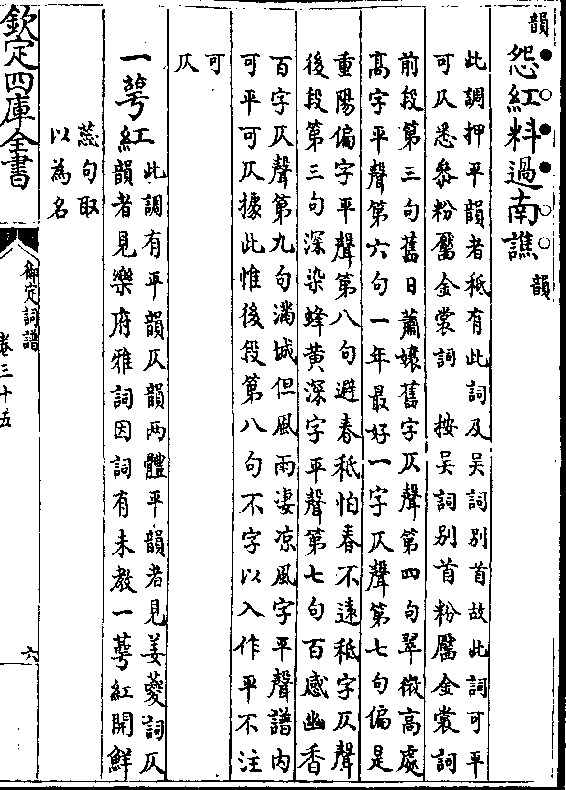 韻
怨紅料過南譙
韻
此調押平韻者秪有此詞及吳詞别首故此詞可平
可仄悉叅粉靨金裳詞　按吳詞别首粉靨金裳詞
前段第三句舊日蕭孃舊字仄聲第四句翠微高處
髙字平聲第六句一年最好一字仄聲第七句偏是
重陽偏字平聲第八句避春秪怕春不遠秪字仄聲
後段第三句深染蜂黄深字平聲第七句百感幽香
百字仄聲第九句滿城但風雨凄凉風字平聲譜内
可平可仄據此惟後段第八句不字以入作平不注
可
仄
一萼紅
此調有平韻仄韻兩體平韻者見姜夔詞仄
韻者見樂府雅詞因詞有未教一萼紅開鮮
蕋句取
以為名
欽定四庫全書
御定詞譜
卷三十五
六